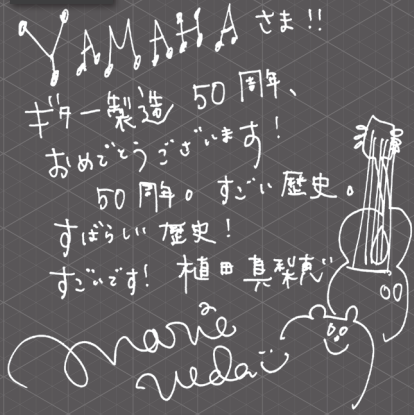 YAMAHA さま!!
ギター製造 50周年、
おめでとうございます!
50周年。すごい歴史。
すばらしい歴史!
すごいです! 植田真梨恵
marie
ueda